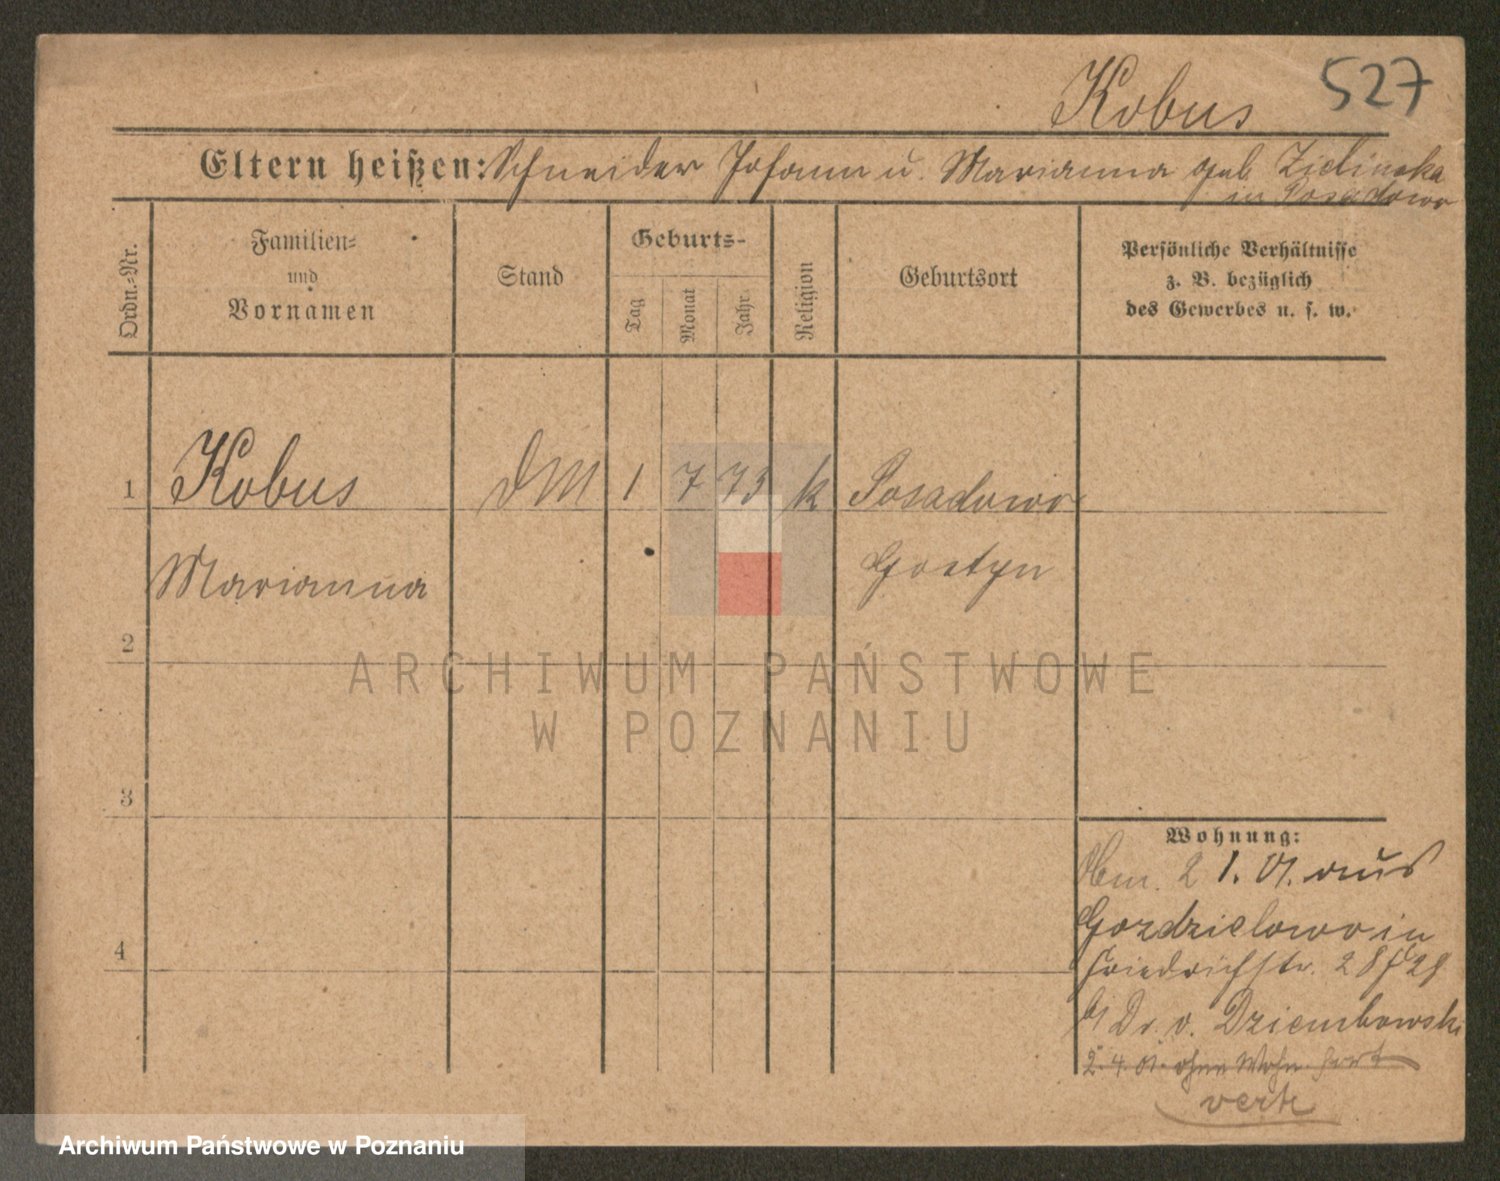 Kobus 527
Eltern heißen: Schneider Johann u. Marianna geb Zielinska
in Posadowo
Ordn.-Nr.
Familien-
und
Vornamen
Stand
Geburts-
Tag
Monat
Jahr.
Religion
Geburtsort
Persönliche Verhältnisse
z. B. bezüglich
des Gewerbes u. s. w.
1 Kobus DM 1 7 73 k Posadowo
Marianna Gostyn
2
ARCHIWUM PAŃSTWOWE
W POZNANIU
3
Wohnung:
2 1. 01. aus
Gozdzielowo in
4
Friedrichstr. 28
b/ Dr. v. Dziembowski
2. 4. 01. ohne Wohn. fort
verh
Archiwum Państwowe w Poznaniu